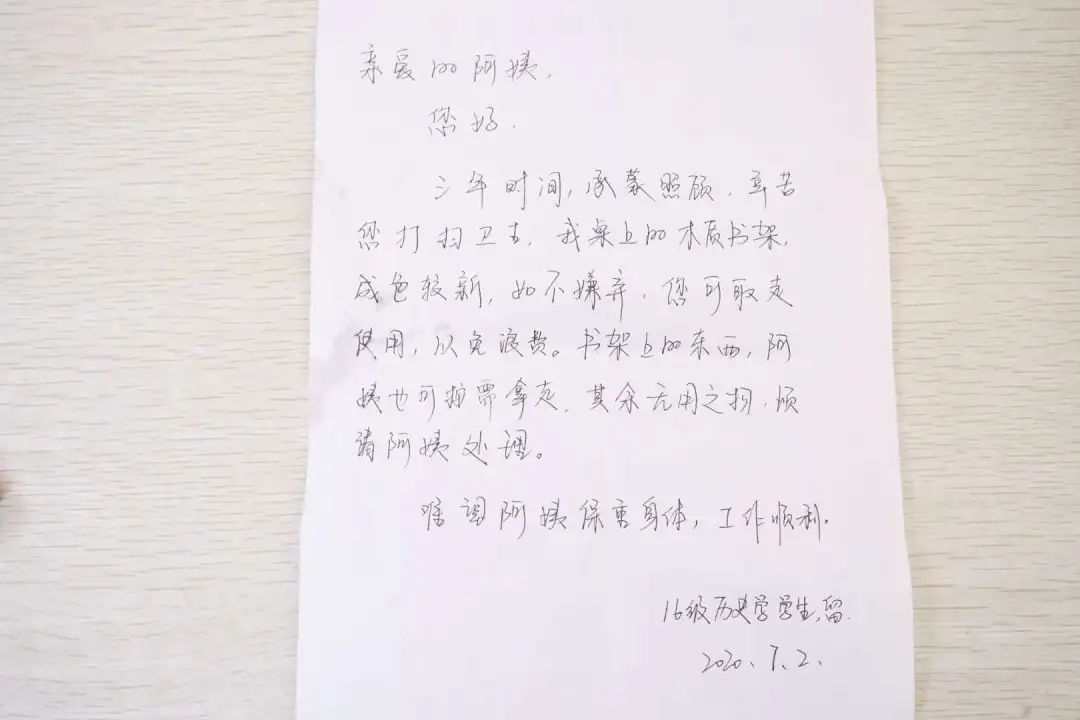 亲爱的阿姨,
您好.
三年时间,承蒙照顾.辛苦
您打扫卫生,我桌上的木质书架,
成色较新,如不嫌弃.您可取走
使用,以免浪费。书架上的东西,阿
姨也可按需拿走.其余无用之物.烦
请阿姨处理。
唯愿阿姨保重身体,工作顺利。
16级历史学学生,留.
2020.7.2.